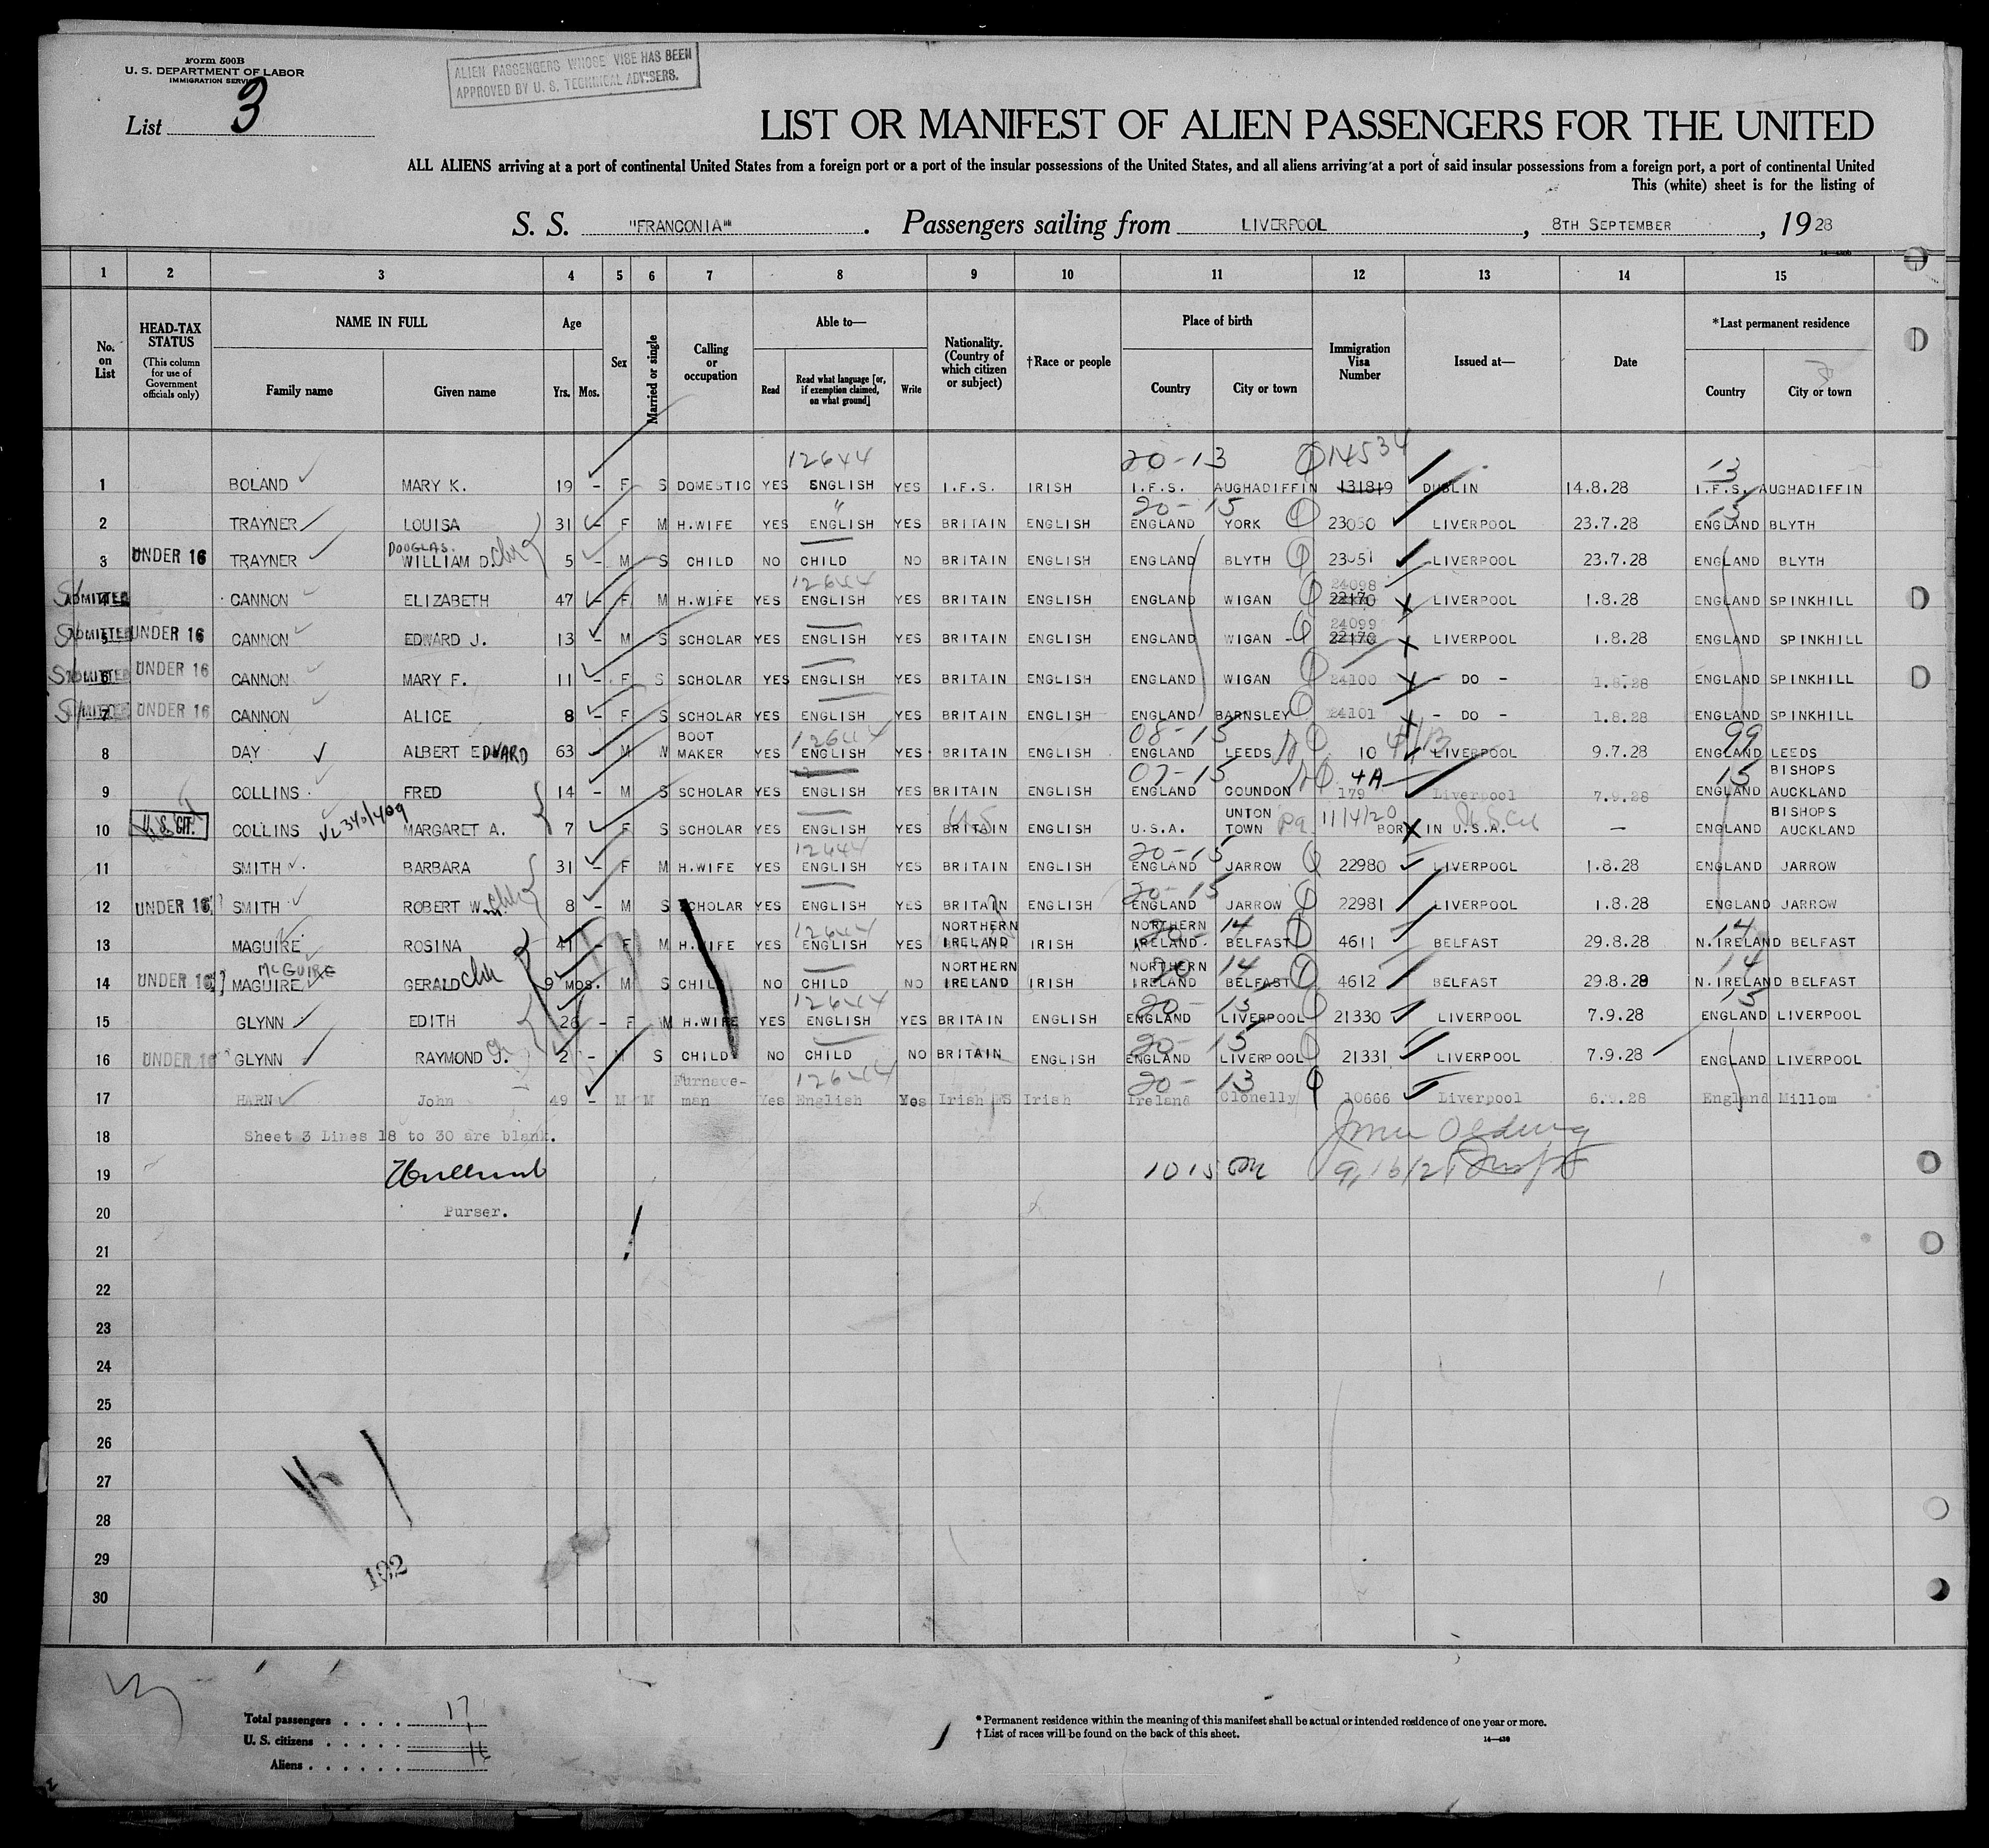 Form 500B
U. S. DEPARTMENT OF LABOR
IMMIGRATION SERVICE
ALIEN PASSENGERS WHOSE VISE HAS BEEN
APPROVED BY U. S. TECHNICAL ADVISERS.
List 3
LIST OR MANIFEST OF ALIEN PASSENGERS FOR THE UNITED
ALL ALIENS arriving at a port of continental United States from a foreign port or a port of the insular possessions of the United States, and all aliens arriving at a port of said insular possessions from a foreign port, a port of continental United
This (white) sheet is for the listing of
S. S. "FRANCONIA" . Passengers sailing from LIVERPOOL , 8TH SEPTEMBER , 19 28
1 2 3 4 5 6 7 8 9 10 11 12 13 14 15
No. on List
HEAD-TAX STATUS (This column for use of Government officials only)
NAME IN FULL Family name Given name
Age Yrs. Mos.
Sex
Married or single
Calling or occupation
Able to— Read Read what language [or, if exemption claimed, on what ground] Write
Nationality. (Country of which citizen or subject)
†Race or people
Place of birth Country City or town
Immigration Visa Number
Issued at—
Date
*Last permanent residence Country City or town
12644 20-13 14534 13
1 BOLAND MARY K. 19 - F S DOMESTIC YES ENGLISH YES I.F.S. IRISH I.F.S. AUGHADIFFIN 131819 DUBLIN 14.8.28 I.F.S. AUGHADIFFIN
" 20-15 15
2 TRAYNER LOUISA 31 - F M H.WIFE YES ENGLISH YES BRITAIN ENGLISH ENGLAND YORK 23050 LIVERPOOL 23.7.28 ENGLAND BLYTH
DOUGLAS.
3 UNDER 16 TRAYNER WILLIAM D. 5 - M S CHILD NO CHILD NO BRITAIN ENGLISH ENGLAND BLYTH 23051 LIVERPOOL 23.7.28 ENGLAND BLYTH
12644 24098
4 ADMITTED CANNON ELIZABETH 47 - F M H.WIFE YES ENGLISH YES BRITAIN ENGLISH ENGLAND WIGAN 22170 LIVERPOOL 1.8.28 ENGLAND SPINKHILL
24099
5 ADMITTED UNDER 16 CANNON EDWARD J. 13 - M S SCHOLAR YES ENGLISH YES BRITAIN ENGLISH ENGLAND WIGAN - 22170 LIVERPOOL 1.8.28 ENGLAND SPINKHILL
6 ADMITTED UNDER 16 CANNON MARY F. 11 - F S SCHOLAR YES ENGLISH YES BRITAIN ENGLISH ENGLAND WIGAN 24100 - DO - 1.8.28 ENGLAND SPINKHILL
7 ADMITTED UNDER 16 CANNON ALICE 8 - F S SCHOLAR YES ENGLISH YES BRITAIN ENGLISH ENGLAND BARNSLEY 24101 - DO - 1.8.28 ENGLAND SPINKHILL
BOOT 12644 08-15 99
8 DAY ALBERT EDWARD 63 M W MAKER YES ENGLISH YES BRITAIN ENGLISH ENGLAND LEEDS 10 LIVERPOOL 9.7.28 ENGLAND LEEDS
07-15 4A 15 BISHOPS
9 COLLINS FRED 14 - M S SCHOLAR YES ENGLISH YES BRITAIN ENGLISH ENGLAND COUNDON 179 Liverpool 7.9.28 ENGLAND AUCKLAND
VL 340/409 US UNION Pa 11/4/20 BISHOPS
10 U. S. CIT. COLLINS MARGARET A. 7 - F S SCHOLAR YES ENGLISH YES BRITAIN ENGLISH U.S.A. TOWN BORN IN U.S.A. - ENGLAND AUCKLAND
12644 20-15
11 SMITH BARBARA 31 - F M H.WIFE YES ENGLISH YES BRITAIN ENGLISH ENGLAND JARROW 22980 LIVERPOOL 1.8.28 ENGLAND JARROW
20-15
12 UNDER 16 SMITH ROBERT Wm. 8 - M S SCHOLAR YES ENGLISH YES BRITAIN ENGLISH ENGLAND JARROW 22981 LIVERPOOL 1.8.28 ENGLAND JARROW
12644 NORTHERN NORTHERN 20- 14 14
13 MAGUIRE ROSINA 41 - F M H.WIFE YES ENGLISH YES IRELAND IRISH IRELAND. BELFAST 4611 BELFAST 29.8.28 N.IRELAND BELFAST
McGUIRE NORTHERN NORTHERN 20 14 14
14 UNDER 16 MAGUIRE GERALD 9 MOS. M S CHILD NO CHILD NO IRELAND IRISH IRELAND BELFAST 4612 BELFAST 29.8.28 N.IRELAND BELFAST
12644 20- 15 15
15 GLYNN EDITH 26 - F M H.WIFE YES ENGLISH YES BRITAIN ENGLISH ENGLAND LIVERPOOL 21330 LIVERPOOL 7.9.28 ENGLAND LIVERPOOL
20- 15
16 UNDER 16 GLYNN RAYMOND J. 2 - M S CHILD NO CHILD NO BRITAIN ENGLISH ENGLAND LIVERPOOL 21331 LIVERPOOL 7.9.28 ENGLAND LIVERPOOL
Furnace- 12644 20- 13
17 HARN John 49 - M M man Yes English Yes Irish FS Irish Ireland Clonelly 10666 Liverpool 6.9.28 England Millom
18 Sheet 3 Lines 18 to 30 are blank.
19 1015
20 Purser.
21
22
23
24
25
26
27
28
29
192
30
Total passengers . . . . 17
U. S. citizens . . . . .
Aliens . . . . . .
* Permanent residence within the meaning of this manifest shall be actual or intended residence of one year or more.
† List of races will be found on the back of this sheet.